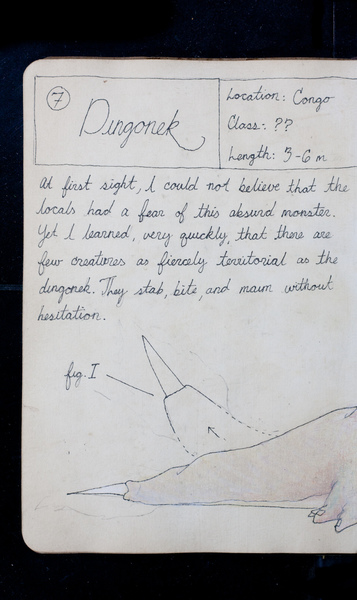 7
Dingonek
Location: Congo
Class: ??
Length: 3-6 m
At first sight, I could not believe that the
locals had a fear of this absurd monster.
Yet I learned, very quickly, that there are
few creatures as fiercely territorial as the
dingonek. They stab, bite, and maim without
hesitation.
fig. I